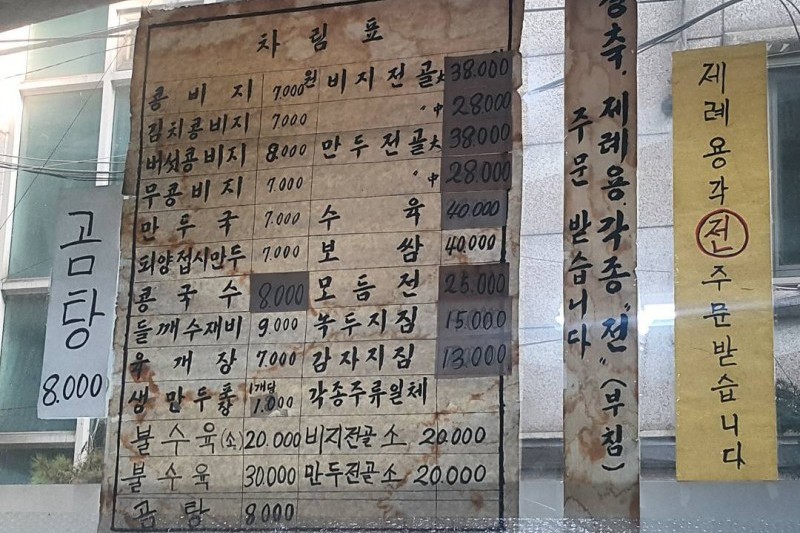 차림표
콩비지 7.000원 비지전골大 38.000
김치콩비지 7.000 〃 中 28.000
버섯콩비지 8.000 만두전골大 38.000
무콩비지 7.000 〃 中 28.000
만두국 7.000 수육 40.000
평양접시만두 7.000 보쌈 40.000
콩국수 8.000 모듬전 25.000
들깨수재비 9.000 녹두지짐 15.000
육개장 7.000 감자지짐 13.000
생만두 1개당 1.000 각종주류일체
불수육(소) 20.000 비지전골소 20.000
불수육 30.000 만두전골소 20.000
곰탕 8.000
곰탕
8.000
축, 제례용, 각종 "전" (부침)
주문 받습니다
제례용각전주문받습니다